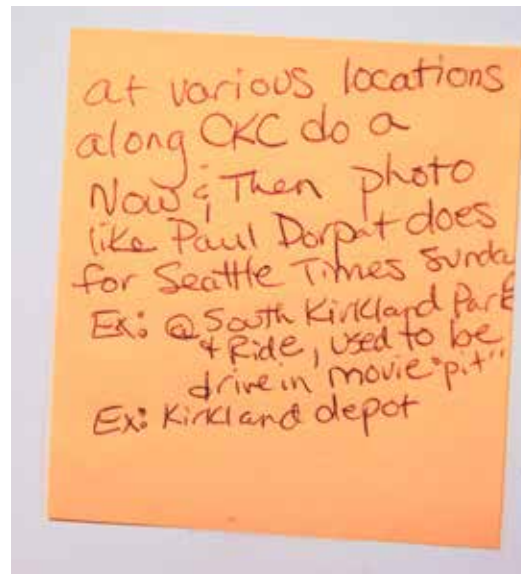 at various locations
along CKC do a
Now & Then photo
like Paul Dorpat does
for Seattle Times Sunday
Ex: @ South Kirkland Park
+ Ride, used to be
drive in movie "pit"
Ex: Kirkland depot